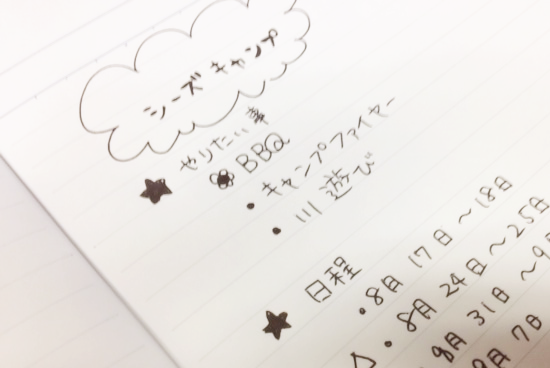 シーズキャンプ
★ やりたい事
BBQ
・キャンプファイヤー
・川遊び
★ 日程
・8月17日〜18日
△・8月24日〜25日
8月31日〜9
9月7日